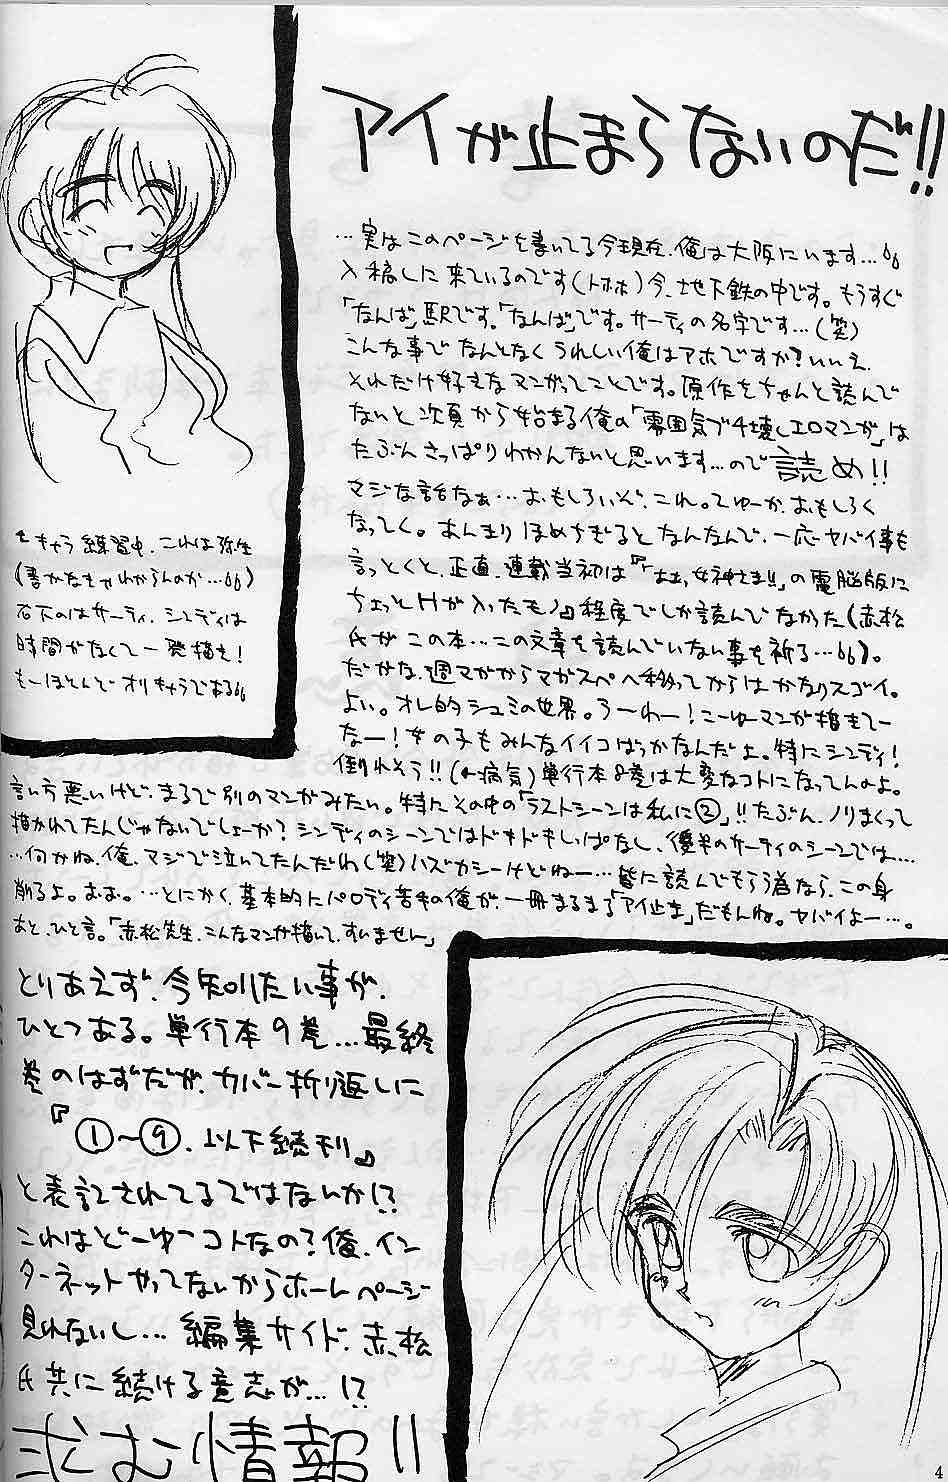 アイが止まらないのだ!!
…実はこのページを書いてる今現在、俺は大阪にいます…
入稿しに来ているのです(トホホ)今、地下鉄の中です。もうすぐ
「なんば」駅です。「なんば」です。サーティの名字です…(笑)
こんな事でなんとなくうれしい俺はアホですか?いいえ
それだけ好きなマンガってことです。原作をちゃんと読んで
ないと次頁から始まる俺の「雰囲気ブチ壊しエロマンガ」は
たぶんさっぱりわかんないと思います…ので読め!!
マジな話なぁ…おもしろいぞ、これ。てゆーか、おもしろく
なってく。あんまりほめちぎるとなんなんで、一応ヤバイ事も
言っとくと、正直、連載当初は『「ああっ女神さまっ!!」の電脳版に
ちょっとHが入ったモノ』程度でしか読んでなかった(赤松
氏がこの本…この文章を読んでいない事を祈る…)。
だがな、週マガからマガスペへ移ってからはかなりスゴイ。
よい。オレ的シュミの世界。うーわー!こーゆーマンガ描きてー
なー!女の子もみんなイイコばっかなんだよ。特にシンディ!
倒れそう!!(←病気)単行本8巻は大変なコトになってんのよ。
言い方悪いけど、まるで別のマンガみたい。特にその中の「ラストシーンは私に②」!!たぶん、ノリまくって
描かれてたんじゃないでしょーか?シンディのシーンではドキドキしっぱなし、後半のサーティのシーンでは…
…何かね、俺、マジで泣いてたんだわ(笑)ハズカシーけどねー…皆に読んでもらう為なら、この身
削るよ。ああ。…とにかく、基本的にパロディ苦手の俺が、一冊まるまる「アイ止ま」だもんね。ヤバイよー…。
あと、ひと言。「赤松先生、こんなマンガ描いて、すいません」
キャラ練習中、これは弥生
(書かなきゃわからんのか…)
右下のはサーティ、シンディは
時間がなくて一発描き!
もーほとんどオリキャラである
とりあえず、今知りたい事が、
ひとつある。単行本9巻…最終
巻のはずだが、カバー折り返しに
『①〜⑨、以下続刊』
と表記されてるではないか!?
これはどーゆーコトなの?俺、イン
ターネットやってないからホームページ
見れないし…編集サイド、赤松
氏共に続ける意志が…!?
求む情報!!
4